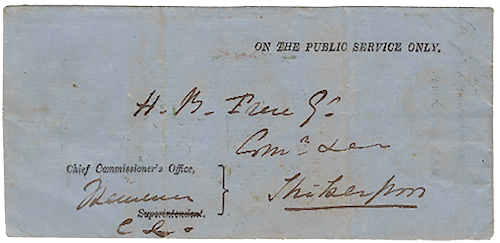 ON THE PUBLIC SERVICE ONLY.
H. B. Frere Esqr
Comr
Chief Commissioner's Office,
Superintendent.
Shikarpoor